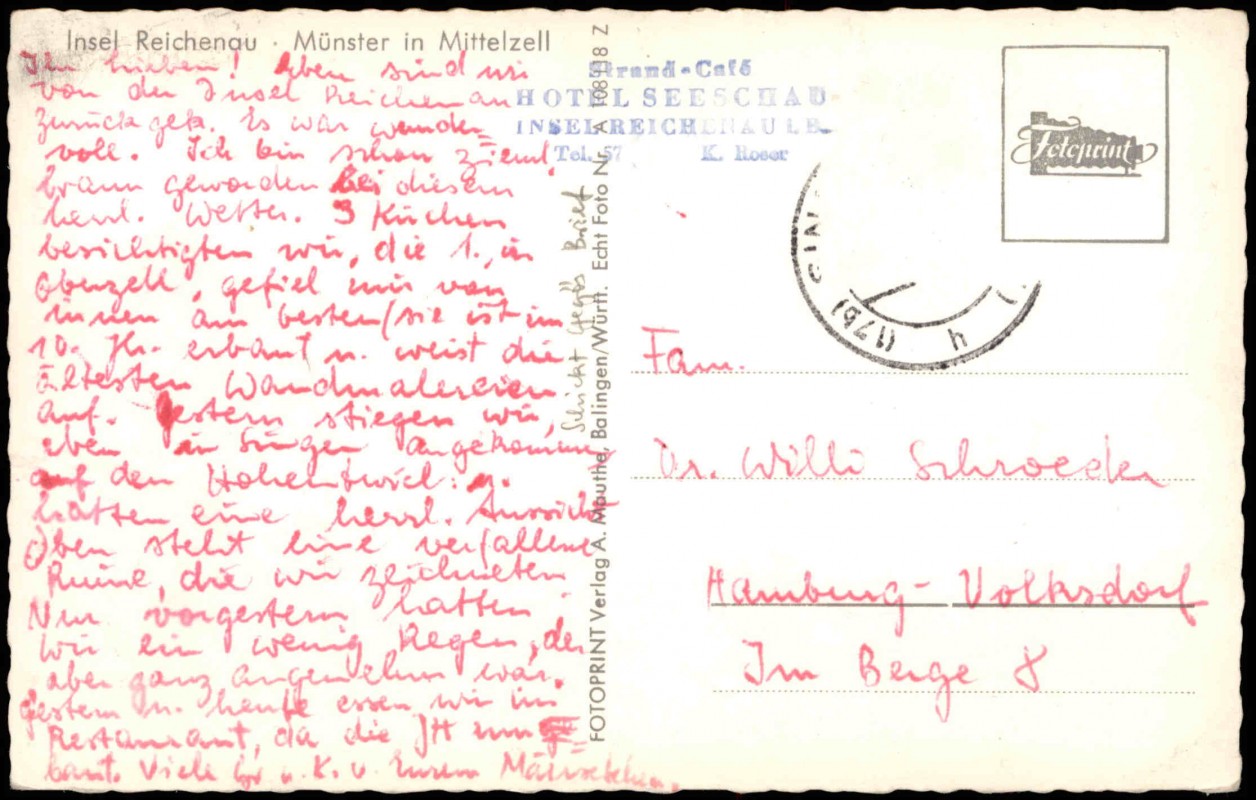 Insel Reichenau · Münster in Mittelzell
Ihr Lieben! Eben sind wir
von der Insel Reichenau
zurückgek. Es war wunder-
voll. Ich bin schon zieml.
braun geworden bei diesem
herrl. Wetter. 3 Kirchen
besichtigten wir, die 1., in
Oberzell, gefiel mir von
innen am besten (sie ist im
10. Jh. erbaut u. weist die
ältesten Wandmalereien
auf. Gestern stiegen wir,
eben in Singen angekommen
auf den Hohentwiel: u.
hatten eine herrl. Aussicht
Oben steht eine verfallene
Ruine, die wir zeichneten
Nur vorgestern hatten
wir ein wenig Regen, der
aber ganz angenehm war.
Gestern u. heute essen wir im
Restaurant, da die JH umge-
baut. Viele Gr. u. K. v. Eurem
Schickt Brief
FOTOPRINT Verlag A. Mauthe, Balingen/Württ. Echt Foto Nr. A Z
Strand-Café
HOTEL SEESCHAU
INSEL REICHENAU
Tel. 57 K. Roser
Fotoprint
(17b)
4
Fam.
Dr. Willi Schroeder
Hamburg-Volksdorf
Im Berge 8